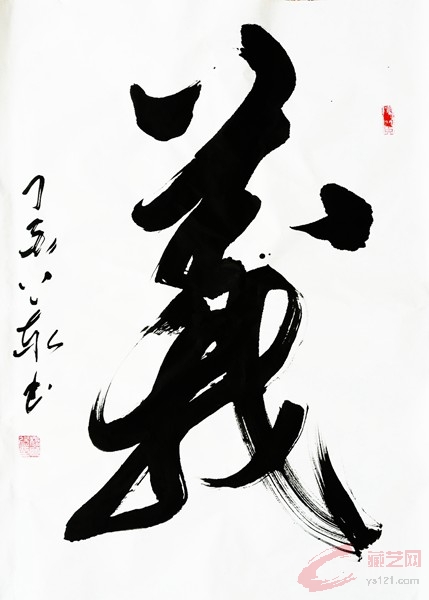 義
丁亥
书
藏艺网
ya121.com